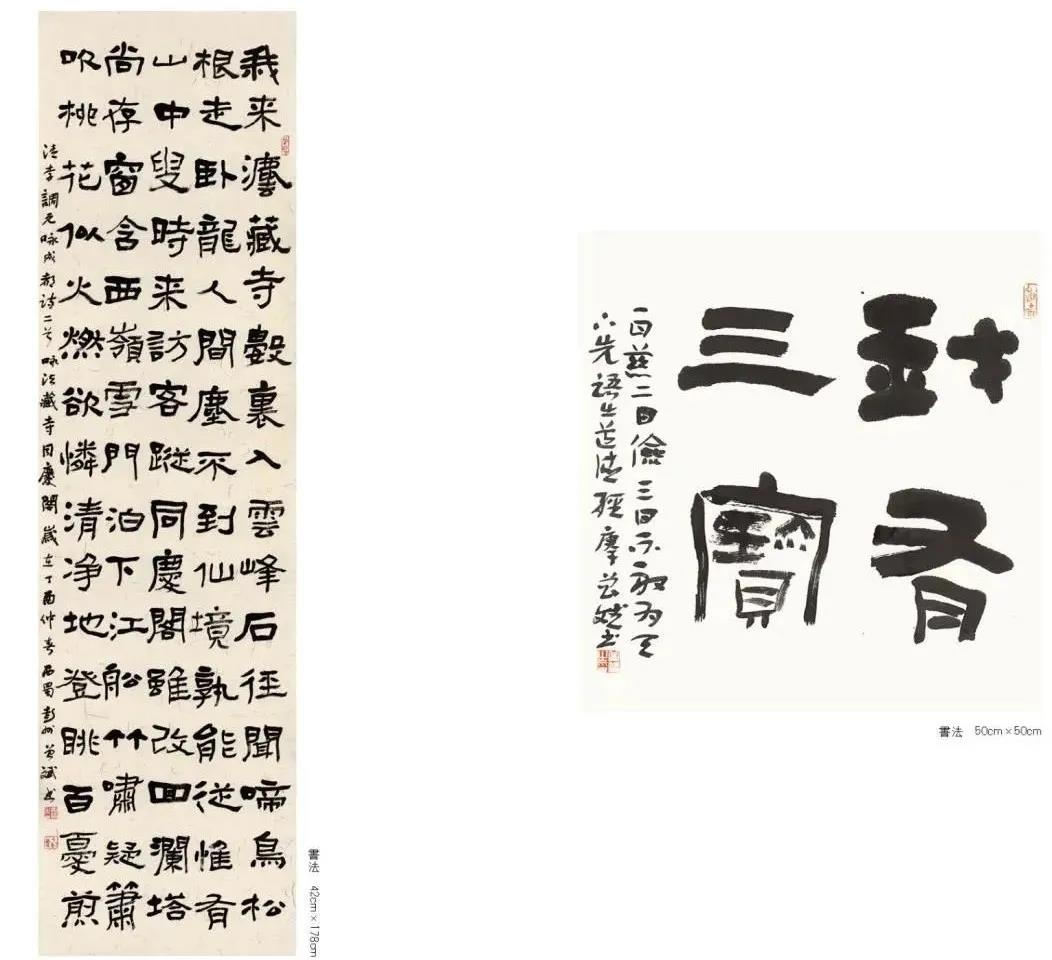 我来灋藏寺數裏入雲峰石径聞啼鳥松
根走卧龍人間塵不到仙境孰能従惟有
山中叟時来訪客蹤同慶閣雖改回瀾塔
尚存窗含西嶺雪門泊下江船竹嘯疑簫
吹桃花似火燃欲憐清净地登眺百憂煎
清李調元咏成都詩二首咏法藏寺同慶閣歲在丁酉仲春西蜀彭州斌书
書法 42cm×178cm
我有
三寶
一曰慈二曰儉三曰不敢为天
下先語出道德經斌书
書法 50cm×50cm